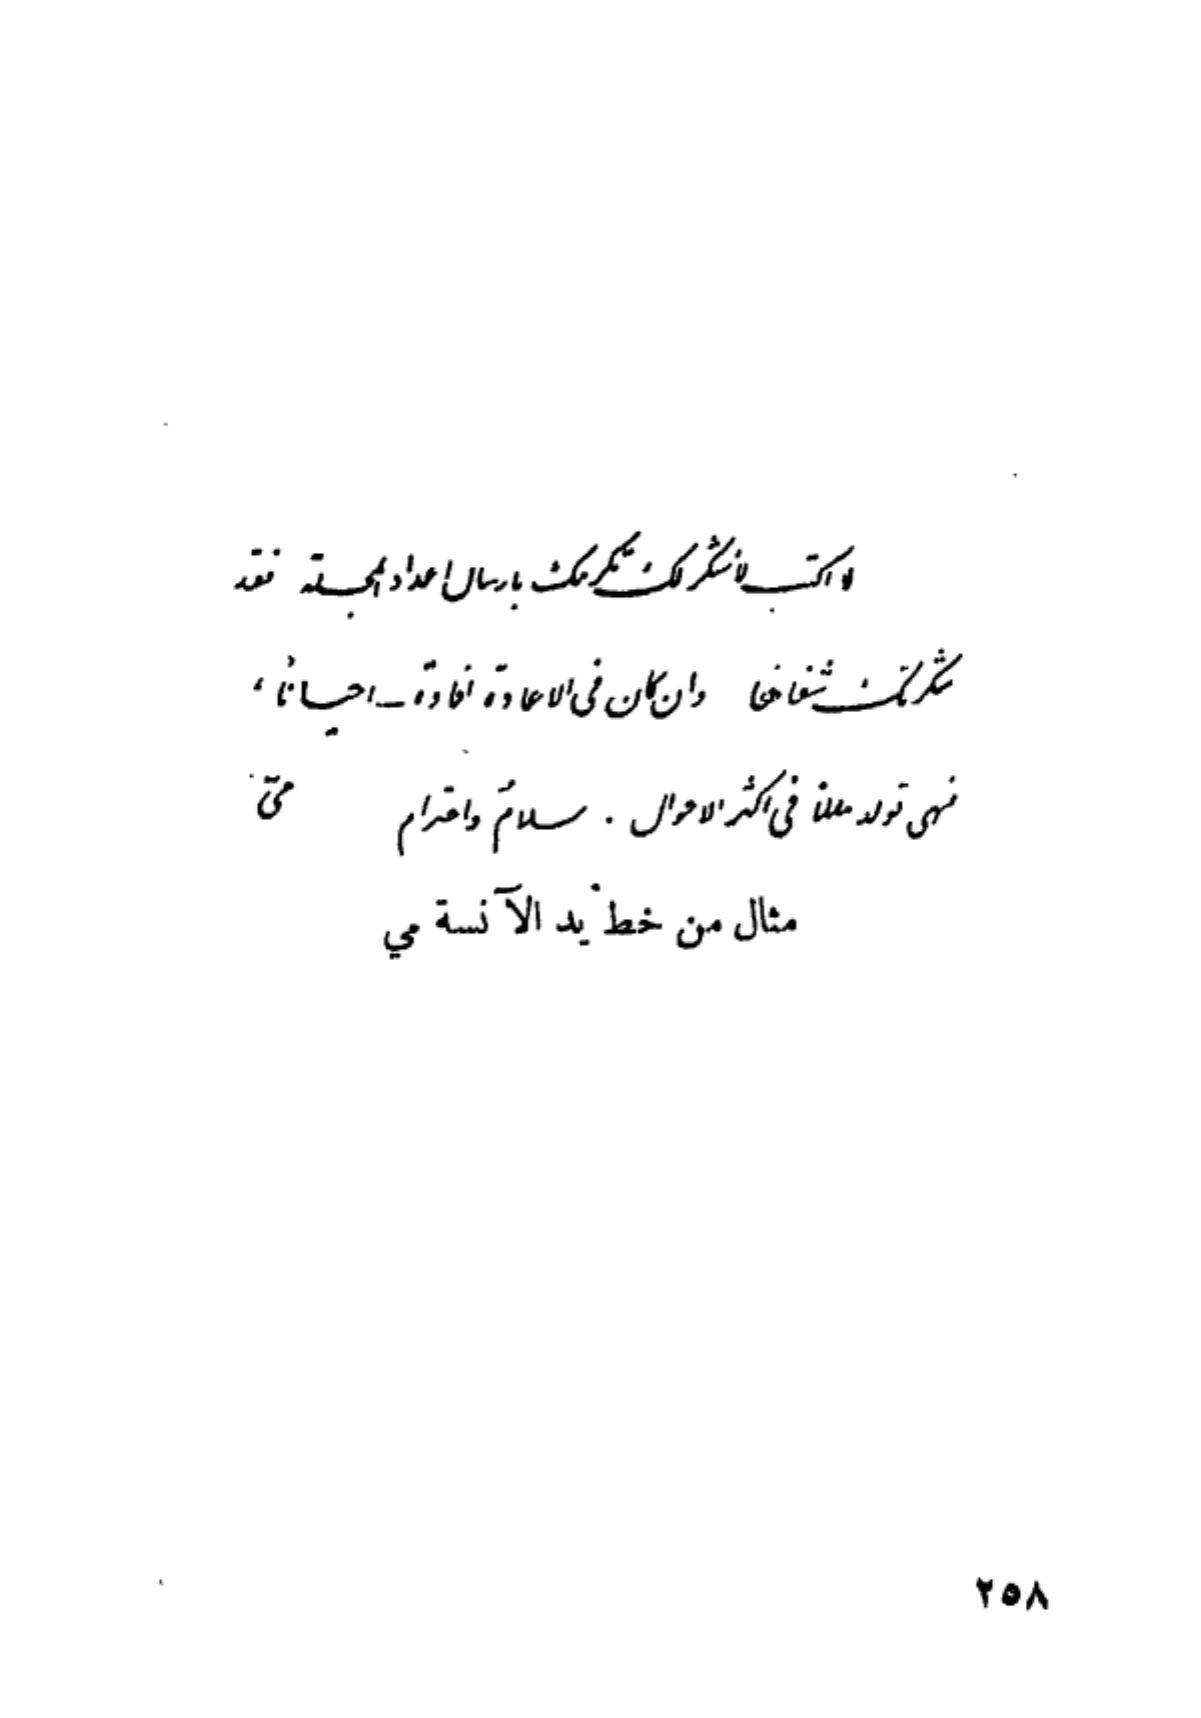 لا اكتب لأشكر لك تكرمك بارسال اعداد المجلة فقد
شكرتك شفاها وان كان في الاعادة افادة ــ احياناً ،
فهي تولد مللاً في اكثر الاحوال . سلامٌ واحترام ميّ
مثال من خط يد الآنسة مي
٢٥٨